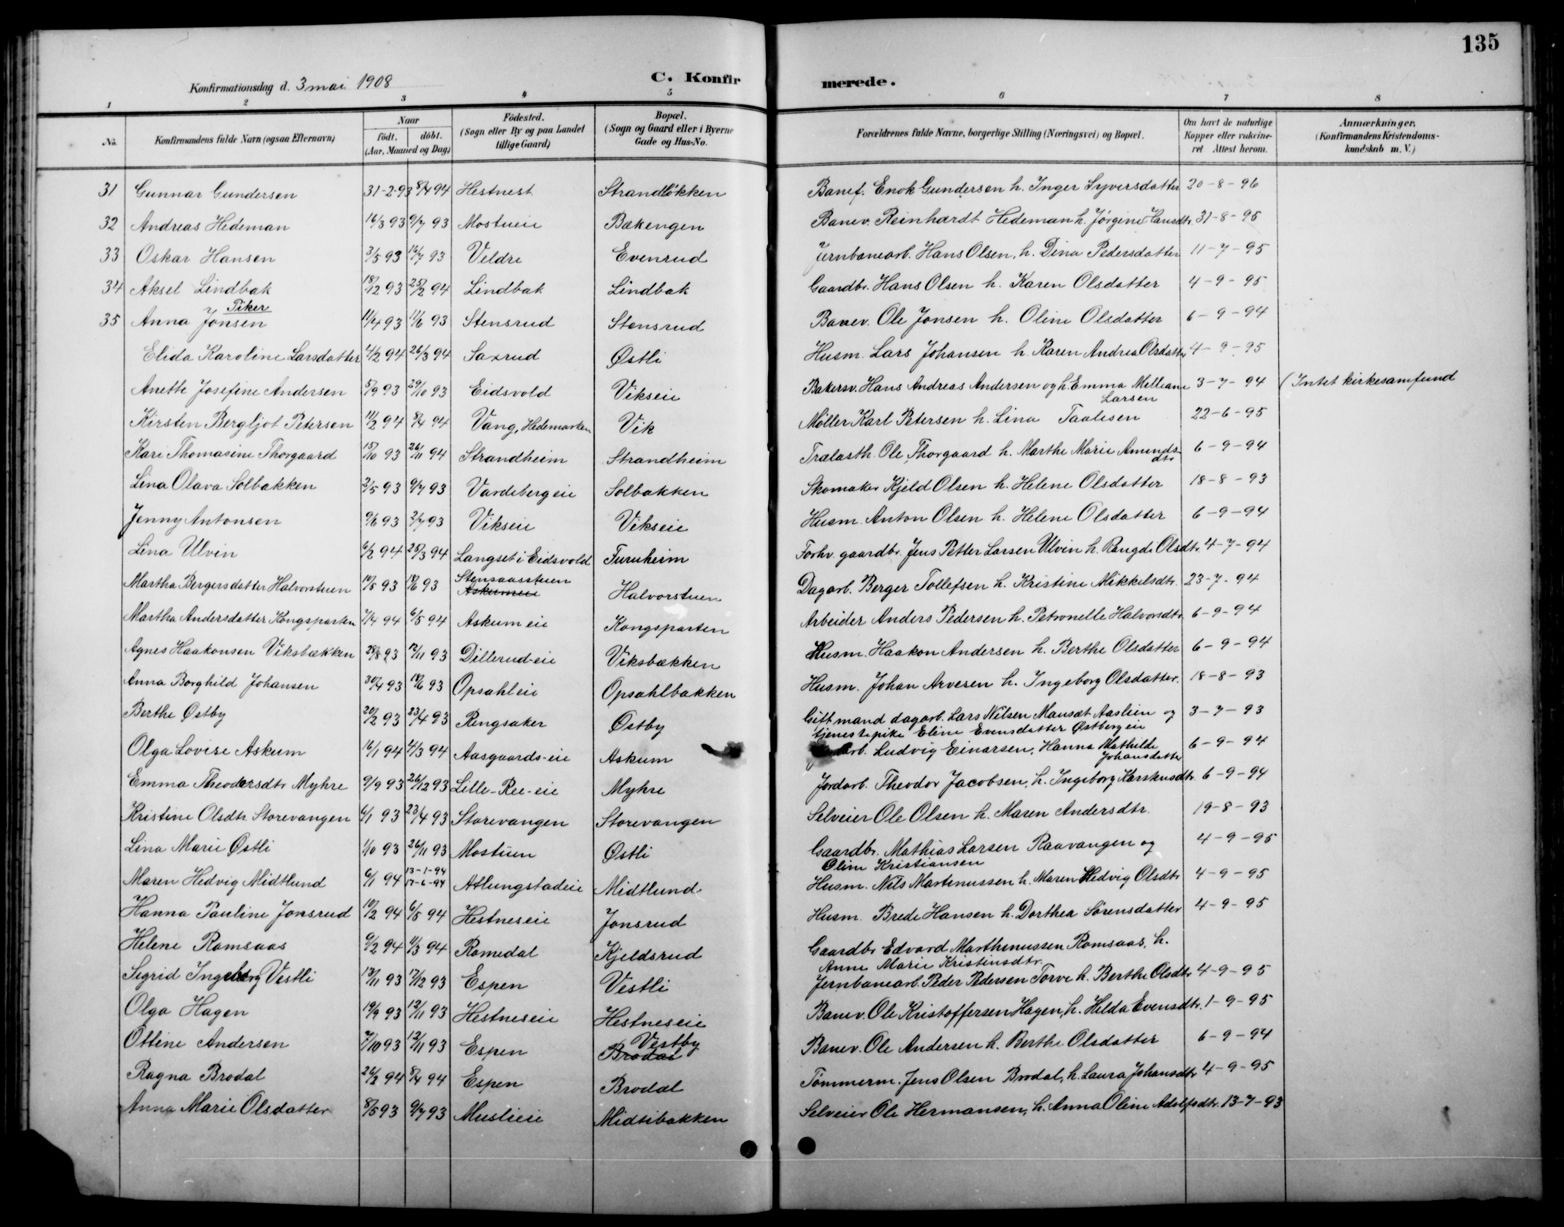 135
Konfirmationsdag d. 3 mai 1908
C. Konfirmerede.
1 2 3 4 5 6 7 8
No. Konfirmandens fulde Navn (ogsaa Efternavn) Naar født. døbt. (Aar, Maaned og Dag) Fødested. (Sogn eller By og paa Landet tillige Gaard) Bopæl. (Sogn og Gaard eller i Byerne Gade og Hus-No. Forældrenes fulde Navne, borgerlige Stilling (Næringsvei) og Bopæl. Om havt de naturlige Kopper eller vakcineret Attest herom. Anmærkninger. (Konfirmandens Kristendomskundskab m. V.)
31 Gunnar Gundersen 31-2-93 8/4 94 Hestnest Strandløkken Banef. Enok Gundersen h. Inger Syversdatter 20-8-96
32 Andreas Hedeman 16/3 93 9/7 93 Mostueie Bækengen Banev. Reinhardt Hedeman h. Jørgine Hansdtr 31-8-95
33 Oskar Hansen 3/5 93 16/7 93 Veldre Evenrud Jernbanearb. Hans Olsen, h. Dina Pedersdatter 11-7-95
34 Aksel Lindbak 18/12 93 25/2 94 Lindbak Lindbak Gaardbr. Hans Olsen h. Karen Olsdatter 4-9-95
Piker
35 Anna Jonsen 11/4 93 11/6 93 Stensrud Stensrud Banev. Ole Jonsen h. Oline Olsdatter 6-9-94
Elida Karoline Larsdatter 4/2 94 26/3 94 Saxrud Østli Husm. Lars Johansen h. Karen Andrea Olsdatter 4-9-95
Anette Josefine Andersen 5/9 93 29/10 93 Eidsvold Vikseie Bakersv. Hans Andreas Andersen og h. Emma Larsen 3-7-94 (Intet kirkesamfund
Kirsten Bergljot Petersen 11/2 94 8/4 94 Vang, Hedemarken Vik Møller Karl Petersen h. Lina Taalesen 22-6-95
Kari Thomasine Thorgaard 15/10 93 26/11 94 Strandheim Strandheim Tralasth. Ole Thorgaard h. Marthe Marie Amundsdtr 6-9-94
Lina Olava Solbakken 3/5 93 9/7 93 Vardebergeie Solbakken Skomaker Kjeld Olsen h. Helene Olsdatter 18-8-93
Jenny Antonsen 9/6 93 2/7 93 Vikseie Vikseie Husm. Anton Olsen h. Helene Olsdatter 6-9-94
Lina Ulvin 6/2 94 25/3 94 Langset i Eidsvold Furuheim Forhv. gaardbr. Jens Petter Larsen Ulvin h. Rangdi Olsdtr 4-7-94
Martha Bergersdatter Halvorstuen 12/5 93 18/6 93 Stensaasstuen Halvorstuen Dagarb. Berger Tollefsen h. Kristine Mikkelsdtr. 23-7-94
Martha Andersdatter Kongsparten 7/4 94 6/5 94 Askum eie Kongsparten Arbeider Anders Pedersen h. Petronelle Halvorsdtr. 6-9-94
Agnes Haakonsen Viksbækken 28/8 93 12/11 93 Dillerud-eie Viksbækken Husm. Haakon Andersen h. Berthe Olsdatter 6-9-94
Anna Borghild Johansen 30/4 93 18/6 93 Opsahleie Opsahlbakken Husm. Johan Arvesen h. Ingeborg Olsdatter. 18-8-93
Berthe Østby 20/2 93 23/4 93 Ringsaker Østby Gift mand dagarb. Lars Nilsen Mausæt Aaslien og tjenestepike Eline Evensdatter Østbergeie 3-7-93
Olga Lovise Askum 16/1 94 4/3 94 Aasgaards-eie Askum Ludvig Einarsen, Hanna Mathilde Johansdatter 6-9-94
Emma Theodorsdtr Myhre 9/9 93 26/12 93 Lille-Ree-eie Myhre Jordarb. Theodor Jacobsen, h. Ingeborg Karstensdtr. 6-9-94
Kristine Olsdtr. Storevangen 6/1 93 23/4 93 Storevangen Storevangen Selveier Ole Olsen h. Maren Andersdtr. 19-8-93
Lina Marie Østli 1/10 93 26/11 93 Mostuen Østli Gaardbr. Mathias Larsen Raavangen og Oline Kristiansen 4-9-95
Maren Hedvig Midtlund 6/1 94 13-1-94 17-6-94 Atlungstadeie Midtlund Husm. Nils Martinussen h. Maren Hedvig Olsdtr 4-9-95
Hanna Pauline Jonsrud 10/2 94 6/5 94 Hestneseie Jonsrud Husm. Brede Hansen h. Dorthea Sørensdatter 4-9-95
Helene Ramsaas 9/2 94 11/3 94 Romedal Kjeldsrud Gaardbr Edvard Marthinussen Ramsaas, h. Anne Marie Kristensdtr.
Sigrid Ingeborg Vestli 13/11 93 17/12 93 Espen Vestli Jernbanearb. Peder Pedersen Torve h. Berthe Olsdtr. 4-9-95
Olga Hagen 19/9 93 12/11 93 Hestneseie Hestneseie Banev. Ole Kristoffersen Hagen, h. Helda Evensdtr. 1-9-95
Otline Andersen 7/10 93 12/11 93 Espen Brodal Vestby Banev. Ole Andersen h. Berthe Olsdatter 6-9-94
Ragna Brodal 26/2 94 8/4 94 Espen Brodal Tømmerm. Jens Olsen Brodal, h. Laura Johansdtr 4-9-95
Anna Marie Olsdatter 8/5 93 9/7 93 Muslieie Midtibakken Selveier Ole Hermansen, h. Anna Oline Adolfsdtr. 13-7-93